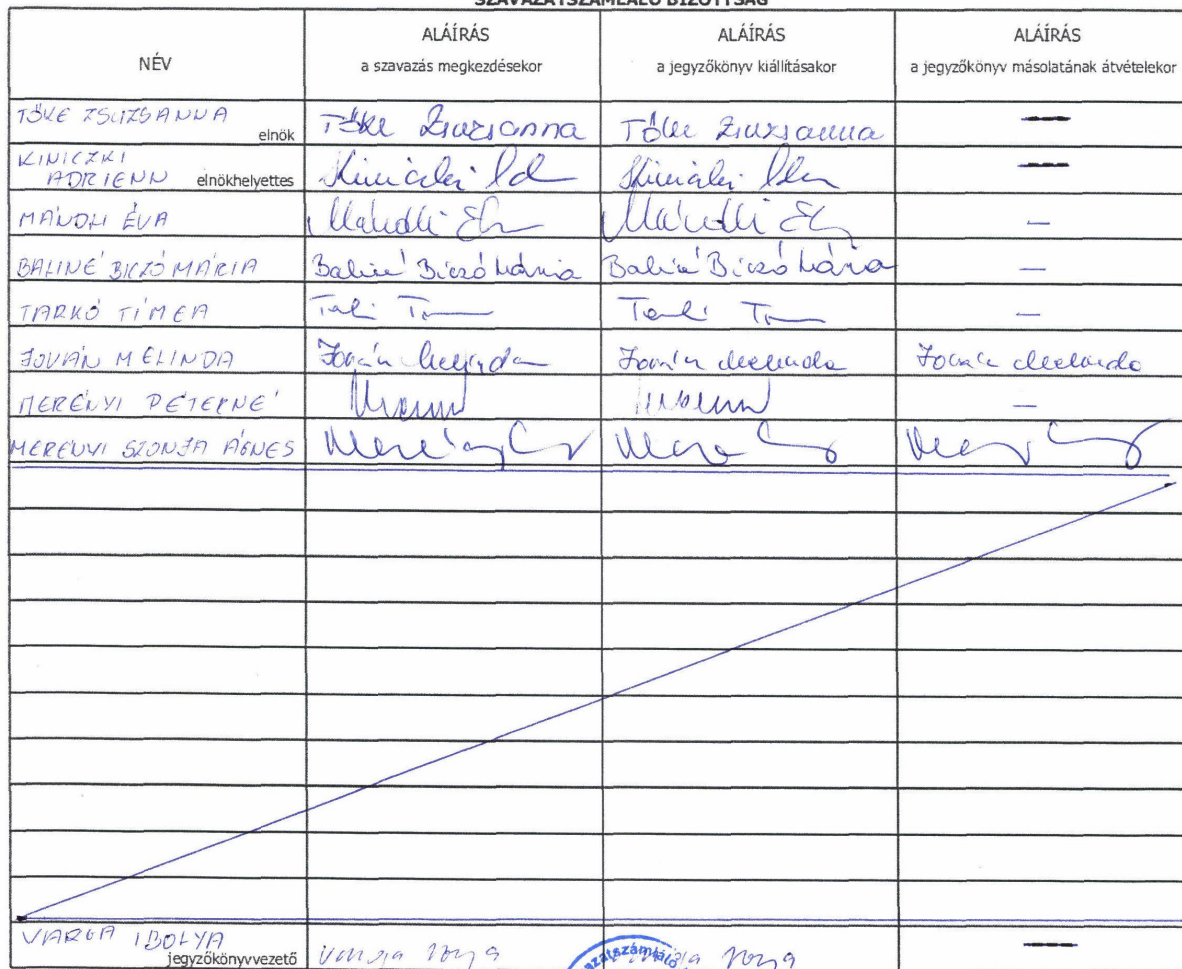 SZAVAZATSZÁMLÁLÓ BIZOTTSÁG
NÉV
ALÁÍRÁS
a szavazás megkezdésekor
ALÁÍRÁS
a jegyzőkönyv kiállításakor
ALÁÍRÁS
a jegyzőkönyv másolatának átvételekor
TŐKE ZSUZSANNA elnök Tőke Zsuzsanna Tőke Zsuzsanna —
KINICZKI
ADRIENN elnökhelyettes —
MÁNDLI ÉVA Mándli Mándli —
BALINÉ BICZÓ MÁRIA Baliné Biczó Mária Baliné Biczó Mária —
TARKÓ TÍMEA —
JOVÁN MELINDA Jován Melinda Jován Melinda Jován Melinda
MERÉNYI PÉTERNÉ —
MERÉNYI SZONJA ÁGNES
VARGA IBOLYA
jegyzőkönyvvezető Varga —